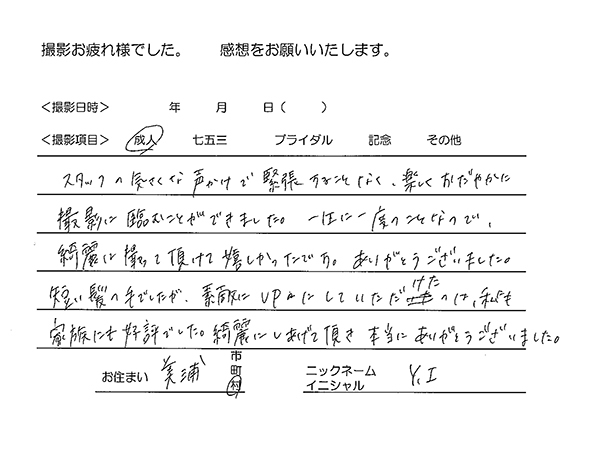 撮影お疲れ様でした。　感想をお願いいたします。
＜撮影日時＞　年　月　日（　）
＜撮影項目＞　成人　七五三　ブライダル　記念　その他
スタッフの気さくな声かけで緊張することなく、楽しくおだやかに
撮影に臨むことができました。一生に一度のことなので、
綺麗に撮って頂けて嬉しかったです。ありがとうございました。
短い髪の毛でしたが、素敵にUPにしていただけたのは、私も
家族にも好評でした。綺麗にしあげて頂き本当にありがとうございました。
お住まい　美浦　市町村　ニックネーム イニシャル　Y.I